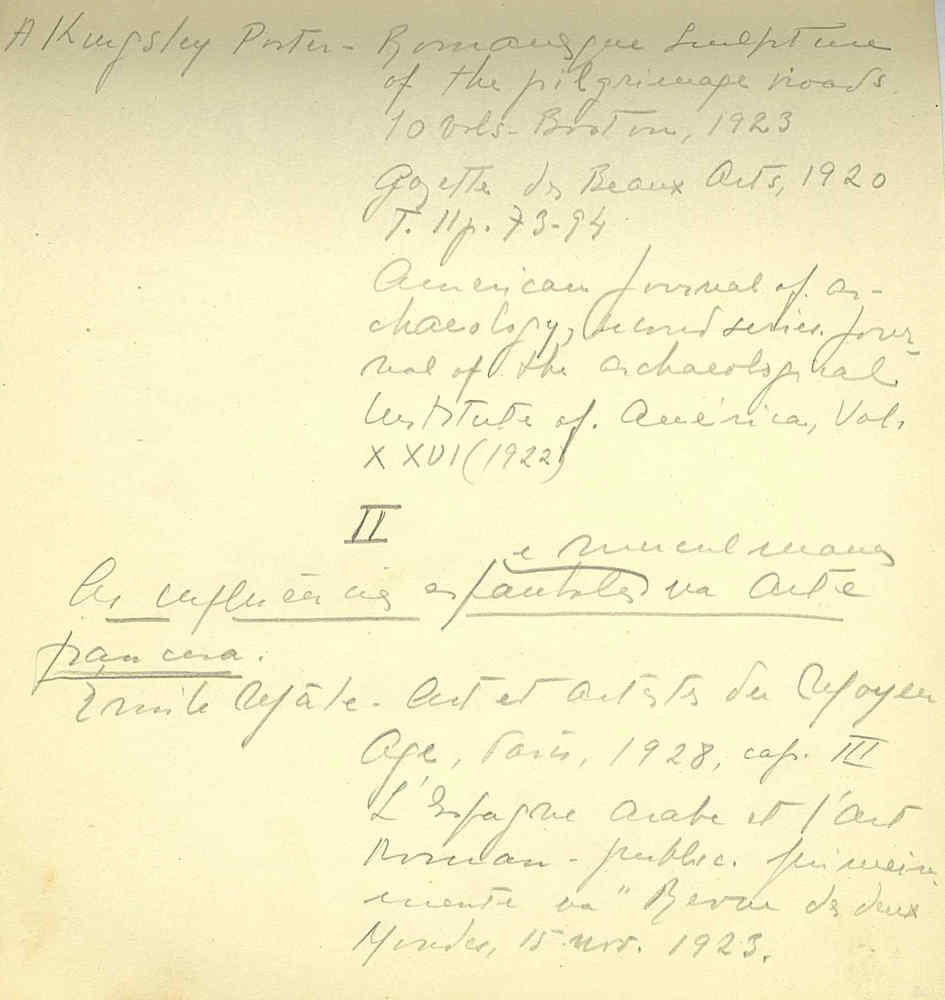 A Kingsley Porter - Romanesque Sculpture
of the pilgrimage roads.
10 vols - Boston, 1923
Gazette des Beaux Arts, 1920
T. II p. 73-94
American Journal of ar-
chaeology, second series. Jour-
nal of the archaeological
Institute of. América, Vol.
XXVI (1922)
II
e musculmanas
As influências espanholas na arte
francesa.
Emile Mâle - Art et artistes du Moyen
Age, Paris, 1928, cap. III
L'Espagne arabe et l'art
Roman - public. primeira
mente na "Revue des deux
Mondes, 15 nov. 1923.